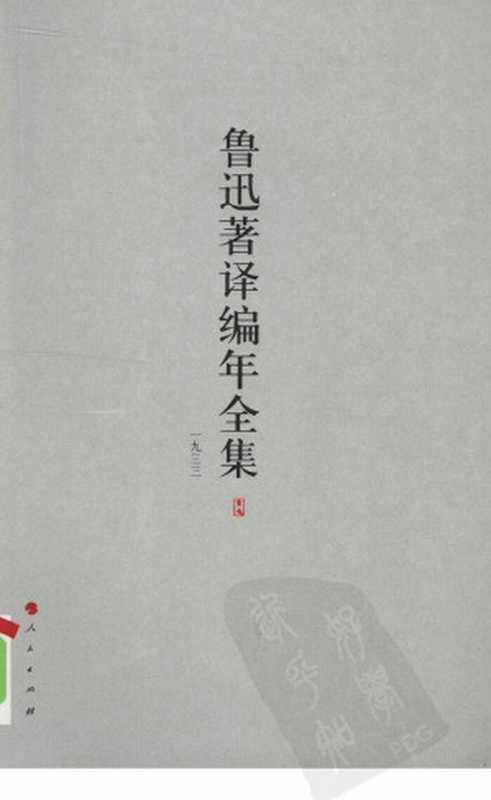 鲁迅著译编年全集
一九三三
人民出版社
PDG